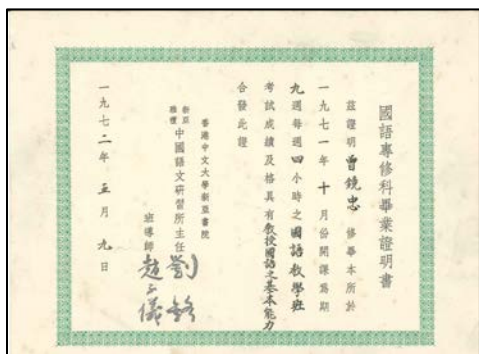 國語專修科畢業證明書
茲證明曾鏡忠修畢本所於
一九七一年十月份開課為期
九週每週四小時之國語教學班
考試成績及格具有教授國語之基本能力
合發此證
香港中文大學新亞書院
新亞雅禮中國語文研習所主任劉銘
班導師趙
一九七二年五月九日